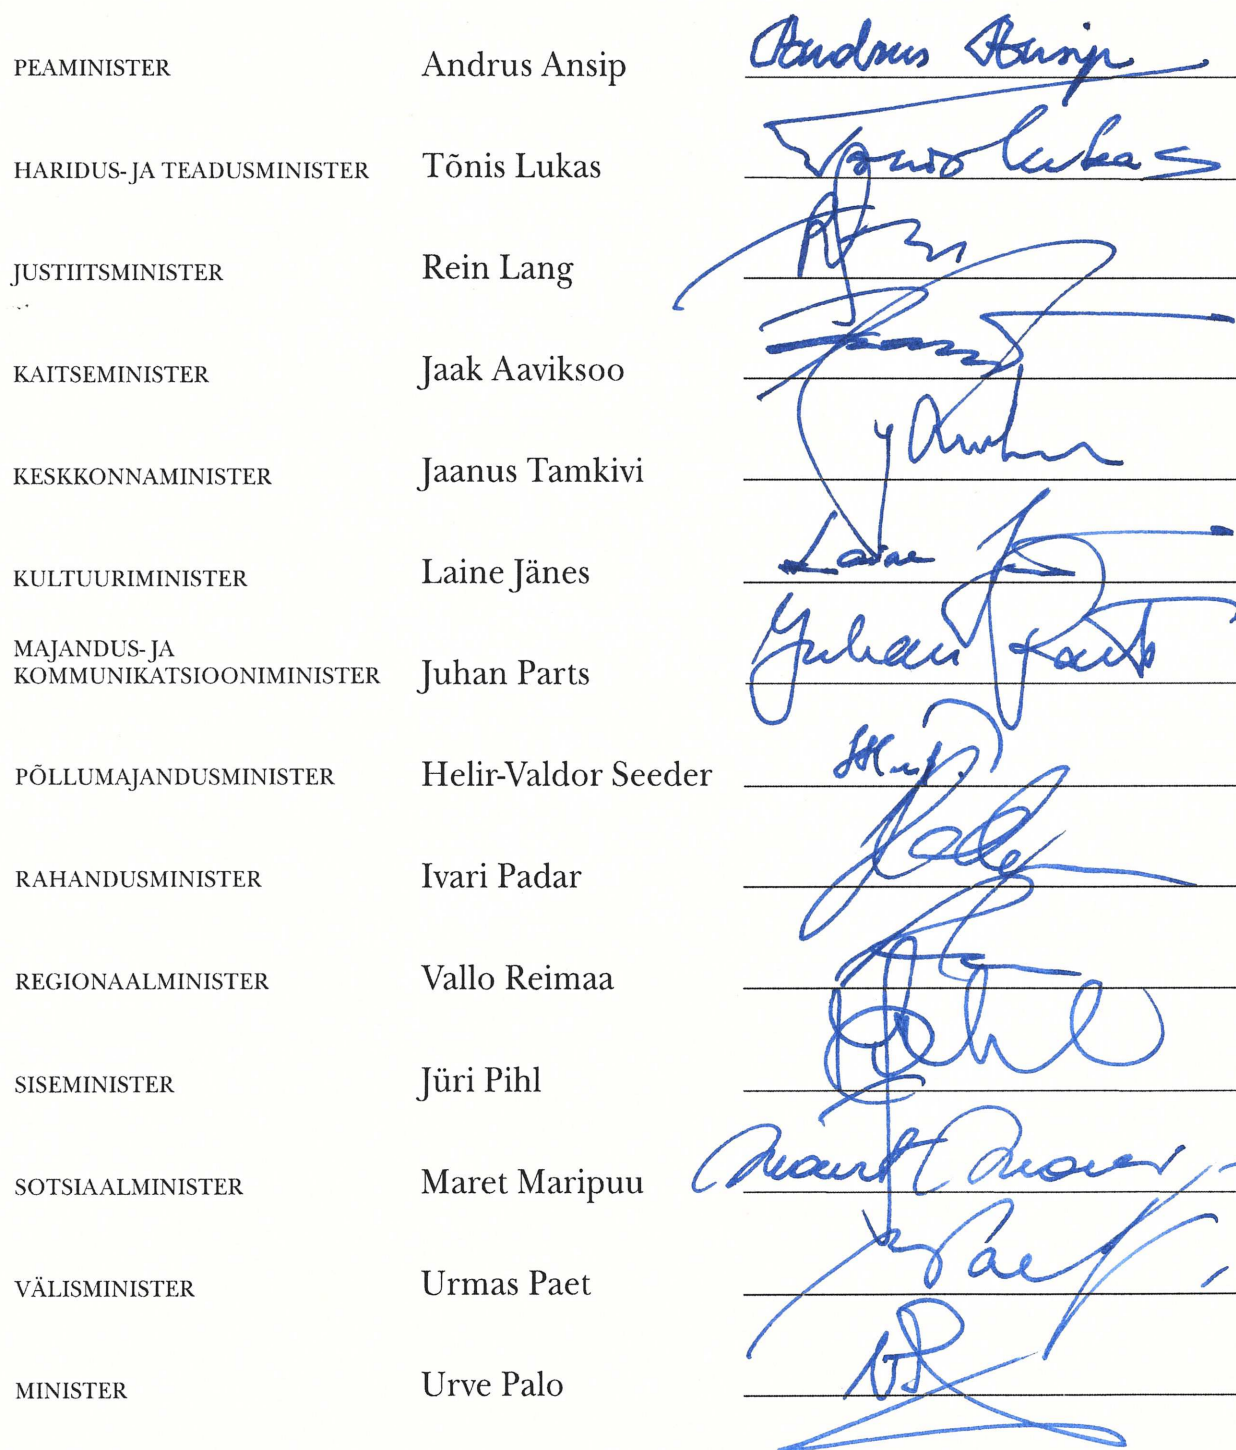 PEAMINISTER Andrus Ansip Andrus Ansip
HARIDUS- JA TEADUSMINISTER Tõnis Lukas Tõnis Lukas
JUSTIITSMINISTER Rein Lang
KAITSEMINISTER Jaak Aaviksoo
KESKKONNAMINISTER Jaanus Tamkivi
KULTUURIMINISTER Laine Jänes Laine
MAJANDUS- JA
KOMMUNIKATSIOONIMINISTER Juhan Parts Juhan Parts
PÕLLUMAJANDUSMINISTER Helir-Valdor Seeder
RAHANDUSMINISTER Ivari Padar
REGIONAALMINISTER Vallo Reimaa
SISEMINISTER Jüri Pihl
SOTSIAALMINISTER Maret Maripuu
VÄLISMINISTER Urmas Paet Paet
MINISTER Urve Palo